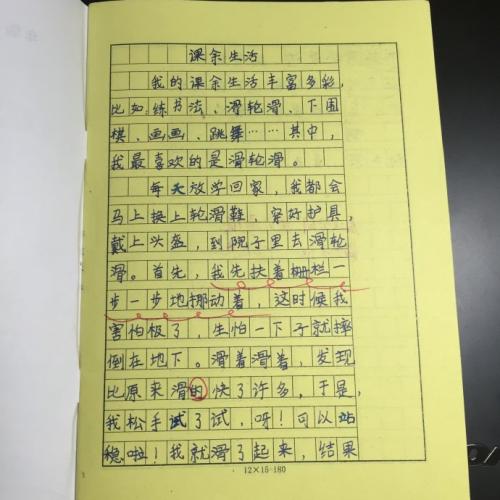 课余生活
我的课余生活丰富多彩，
比如:练书法、滑轮滑、下围
棋、画画、跳舞……其中，
我最喜欢的是滑轮滑。
每天放学回家，我都会
马上换上轮滑鞋，穿好护具，
戴上头盔，到院子里去滑轮
滑。首先，我先扶着栅栏一
步一步地挪动着，这时候我
害怕极了，生怕一下子就摔
倒在地下。滑着滑着，发现
比原来滑的快了许多，于是，
我松手试了试，呀！可以站
稳啦！我就滑了起来，结果
12×15=180